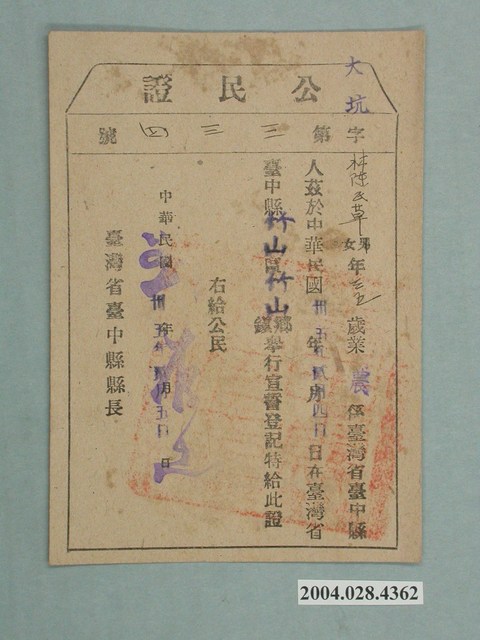 公民證
大坑字第三三四號
林陳氏草 男女 年三五歲業農係臺灣省臺中縣
人茲於中華民國卅五年貳月四日在臺灣省
臺中縣竹山區竹山鄉鎮舉行宣誓登記特給此證
右給公民
中華民國卅五年貳月五日
臺灣省臺中縣縣長
2004.028.4362